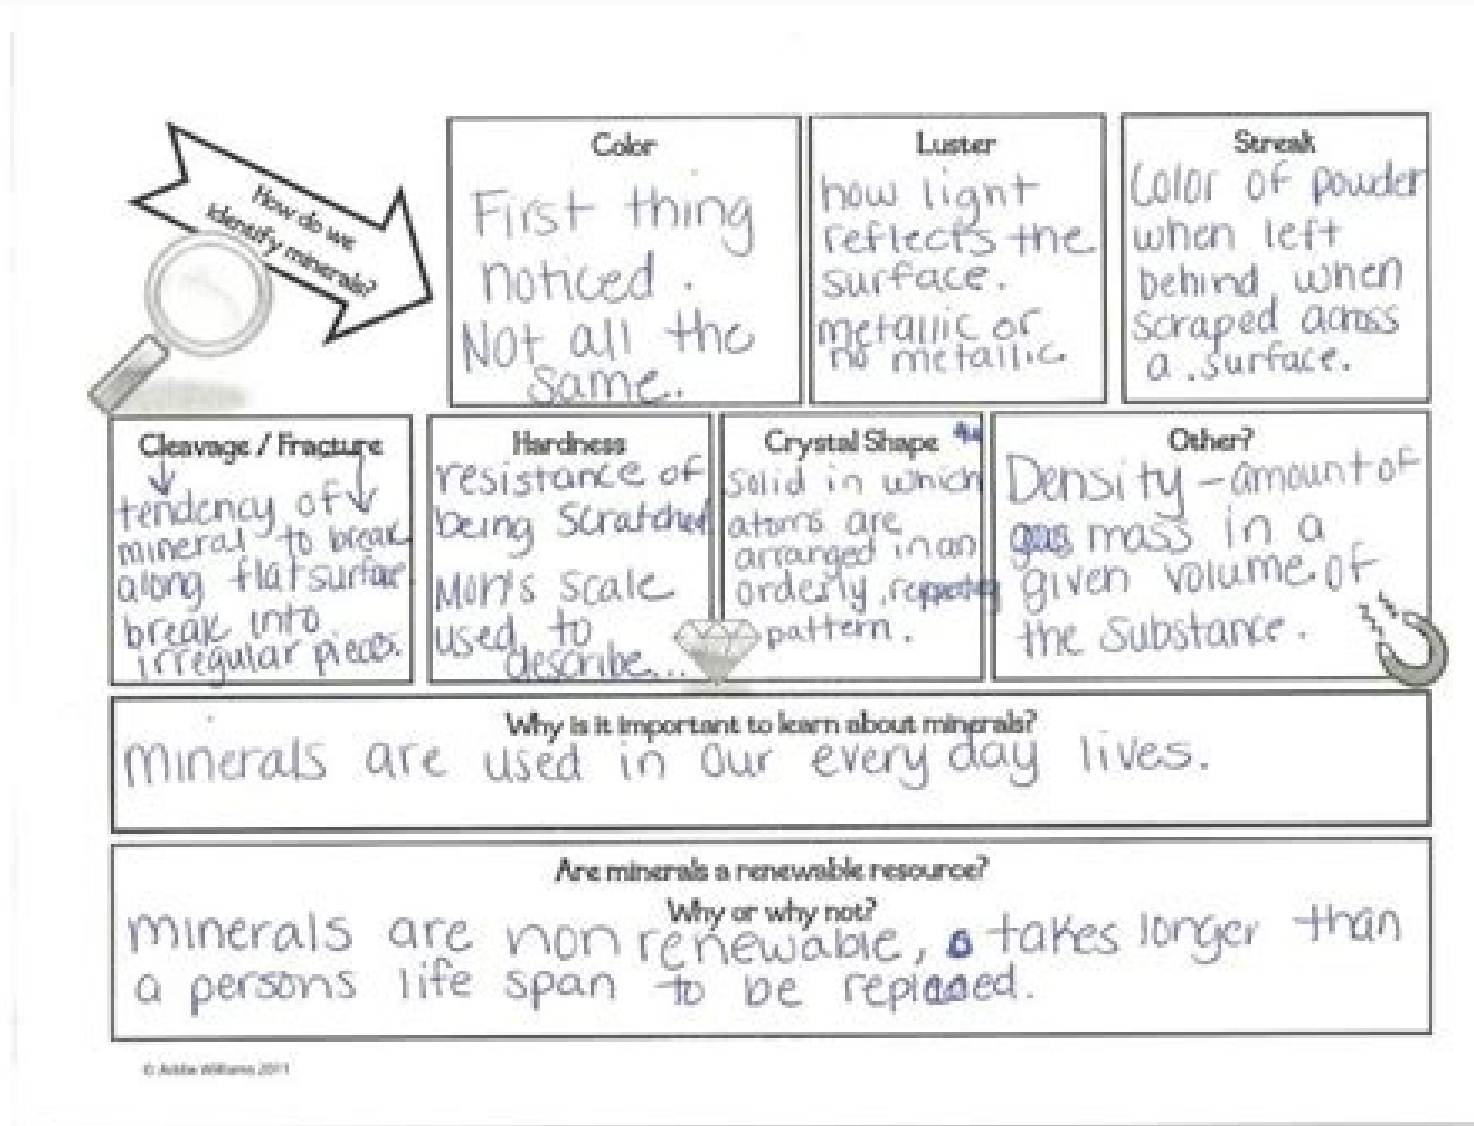 How do we
identify minerals?
Color
First thing
noticed.
Not all the
same.
Luster
how light
reflects the
surface.
metallic or
no metallic.
Streak
Color of powder
when left
behind when
scraped across
a surface.
Cleavage / Fracture
tendency of
mineral to break
along flat surface
break into
irregular pieces.
Hardness
resistance of
being scratched
Moh's scale
used to
describe...
Crystal Shape
Solid in which
atoms are
arranged in an
orderly, repeating
pattern.
Other?
Density - amount of
mass in a
given volume of
the substance.
Why is it important to learn about minerals?
minerals are used in our every day lives.
Are minerals a renewable resource?
Why or why not?
minerals are non renewable, takes longer than
a persons life span to be replaced.
© Addie Williams 2011